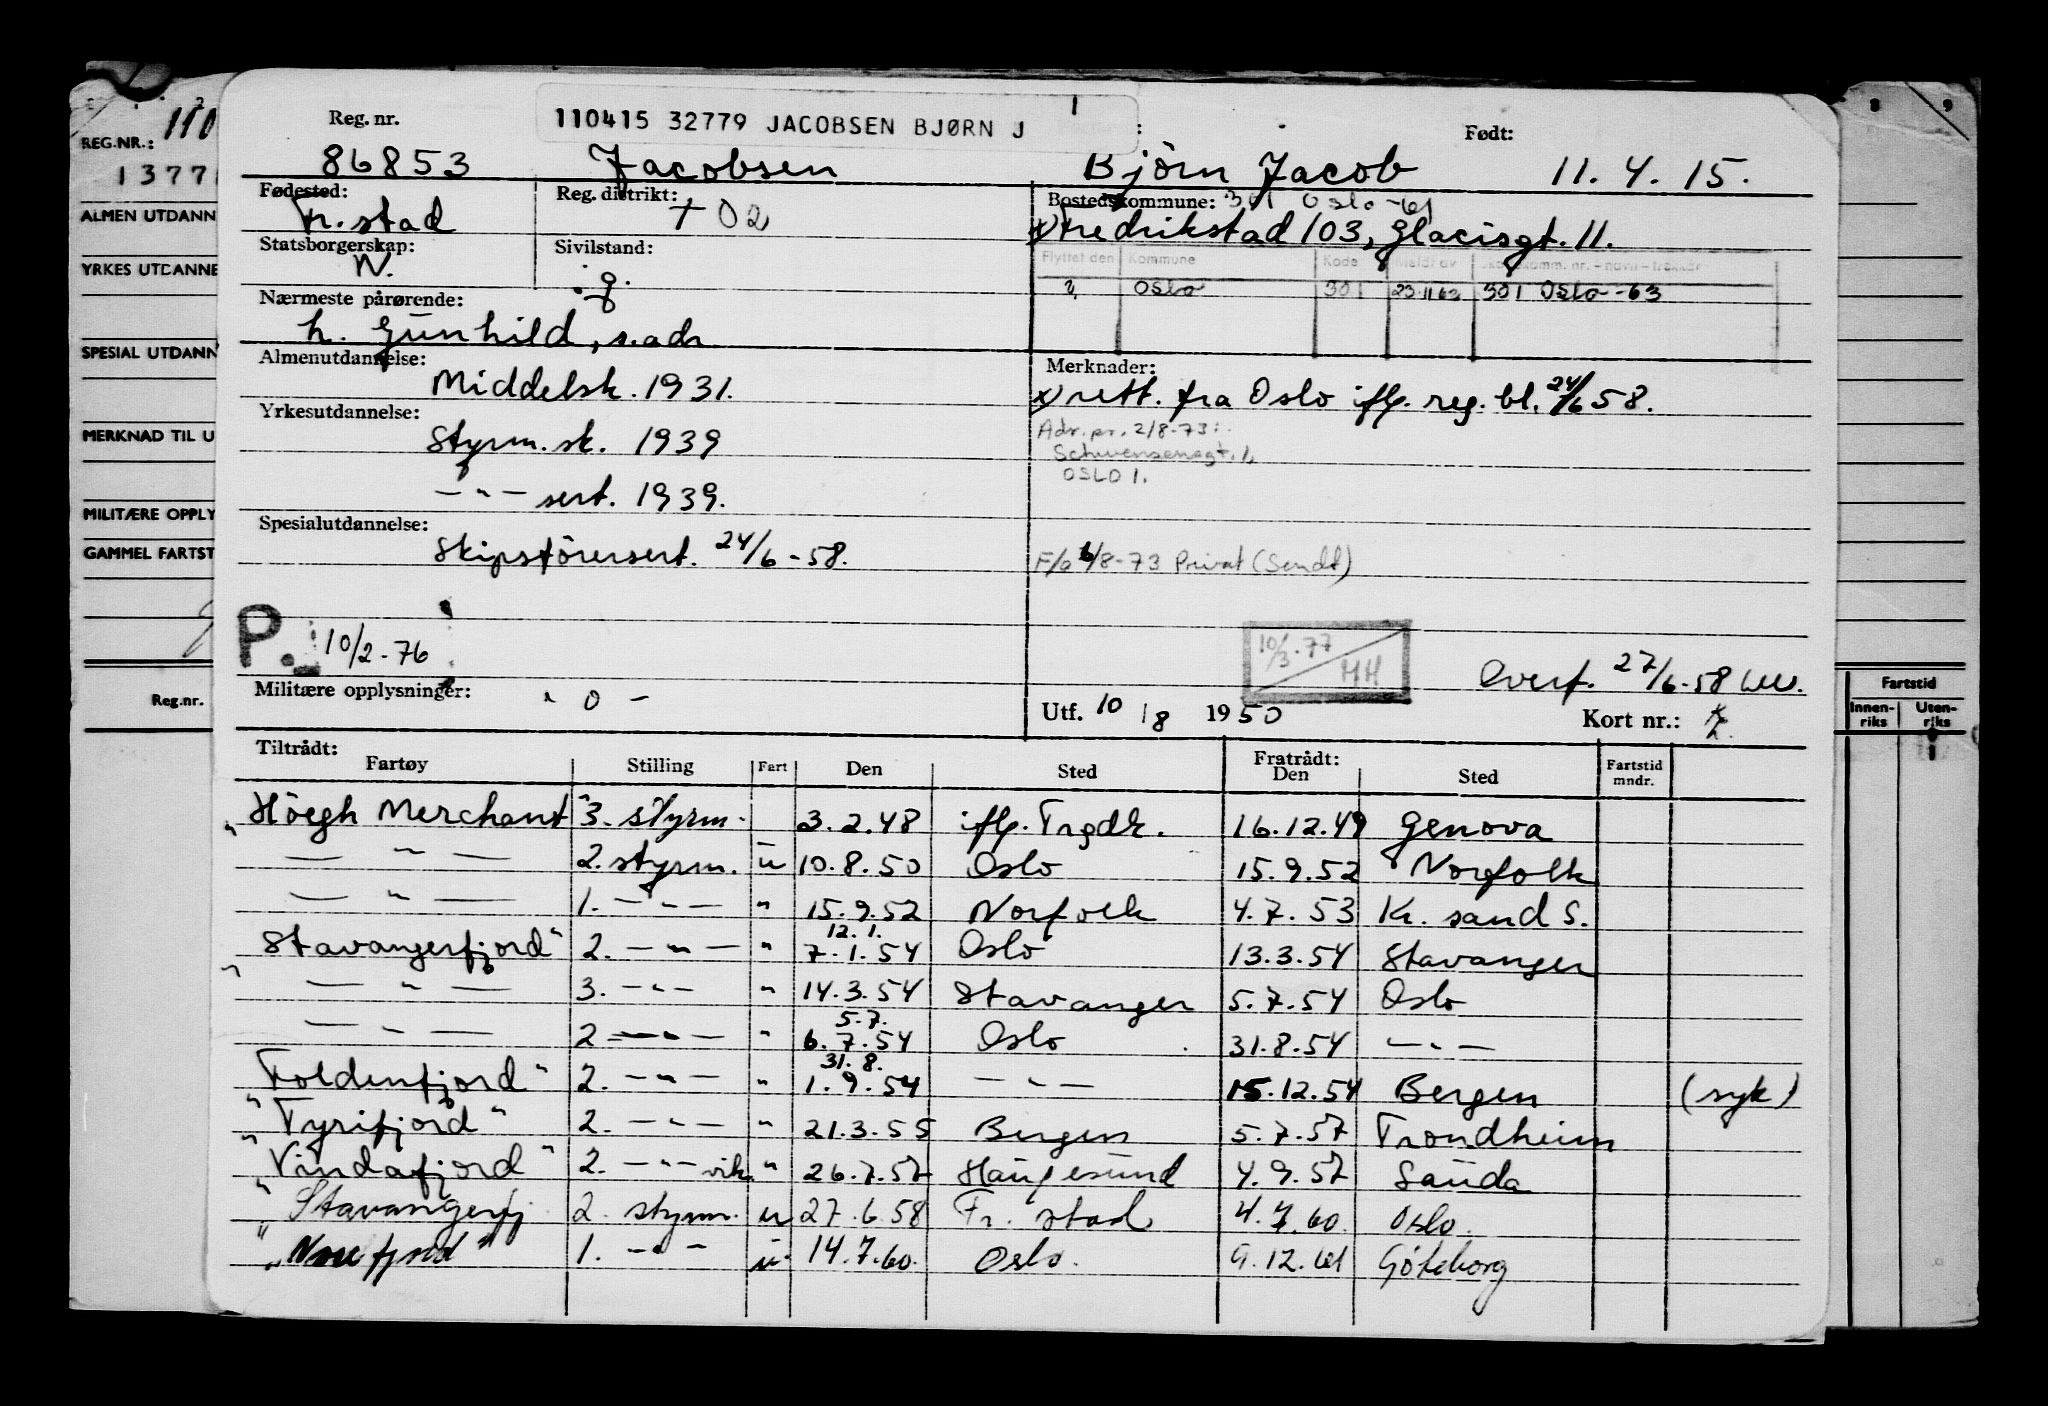 REG.NR.: 110
1377
ALMEN UTDANN
YRKES UTDANNE
SPESIAL UTDANN
MERKNAD TIL U
MILITÆRE OPPLY
GAMMEL FARTST
Reg.nr.
8 9
Fartstid
Innen-riks Uten-riks
Reg. nr. 110415 32779 JACOBSEN BJØRN J Født:
86853 Jacobsen Björn Jacob 11. 4. 15.
Fødested: Reg. distrikt: Bostedskommune: 301 Oslo -61
Fr.stad + 02 x) Fredrikstad 103, Glacisgt. 11.
Statsborgerskap: Sivilstand:
N. g.
Flyttet den Kommune Kode Meldt av Skattekomm. nr. - navn - trekkår
Oslo 301 23.11.63 301 Oslo -63
Nærmeste pårørende:
h. Gunhild, s.adr.
Almenutdannelse: Merknader:
Middelsk. 1931. x) rett. fra Oslo ifly. reg. bl. 24/6 58.
Yrkesutdannelse:
Styrm. sk. 1939
Adr. pr. 2/8-73:
Schwensensgt. 1,
OSLO 1.
— " — sert. 1939.
Spesialutdannelse:
Skipsförersert. 24/6 - 58.
F/o 6/8-73 Privat (Sendt)
P. 10/2-76
10/3.77 HH
Overf. 27/6-58
Militære opplysninger: - 0 -
Utf. 10/8 1950 Kort nr.: 2.
Tiltrådt: Fratrådt:
Fartøy Stilling Fart Den Sted Den Sted Fartstid mndr.
"Höegh Merchant" 3. styrm. 3.2.48 ifly. Trgdk. 16.12.49 Genova
— " — 2. styrm. u 10.8.50 Oslo 15.9.52 Norfolk
— " — 1. — " — " 15.9.52 Norfolk 4.7.53 Kr. sand S.
"Stavangerfjord" 2. — " — " 12.1. 7.1.54 Oslo 13.3.54 Stavanger
— " — 3. — " — " 14.3.54 Stavanger 5.7.54 Oslo
— " — 2 — " — " 5.7. 6.7.54 Oslo 31.8.54 — " —
"Foldenfjord" 2. — " — " 31.8. 1.9.54 — " — 15.12.54 Bergen (syk)
"Tyrifjord" 2. — " — " 21.3.55 Bergen 5.7.57 Trondheim
"Vindafjord" 2. — " — vik. " 26.7.57 Haugesund 4.9.57 Sauda
"Stavangerfj. 2. styrm. u 27.6.58 Fr. stad 4.7.60. Oslo.
fjord" 1. — " — u 14.7.60. Oslo. 9.12.61 Göteborg